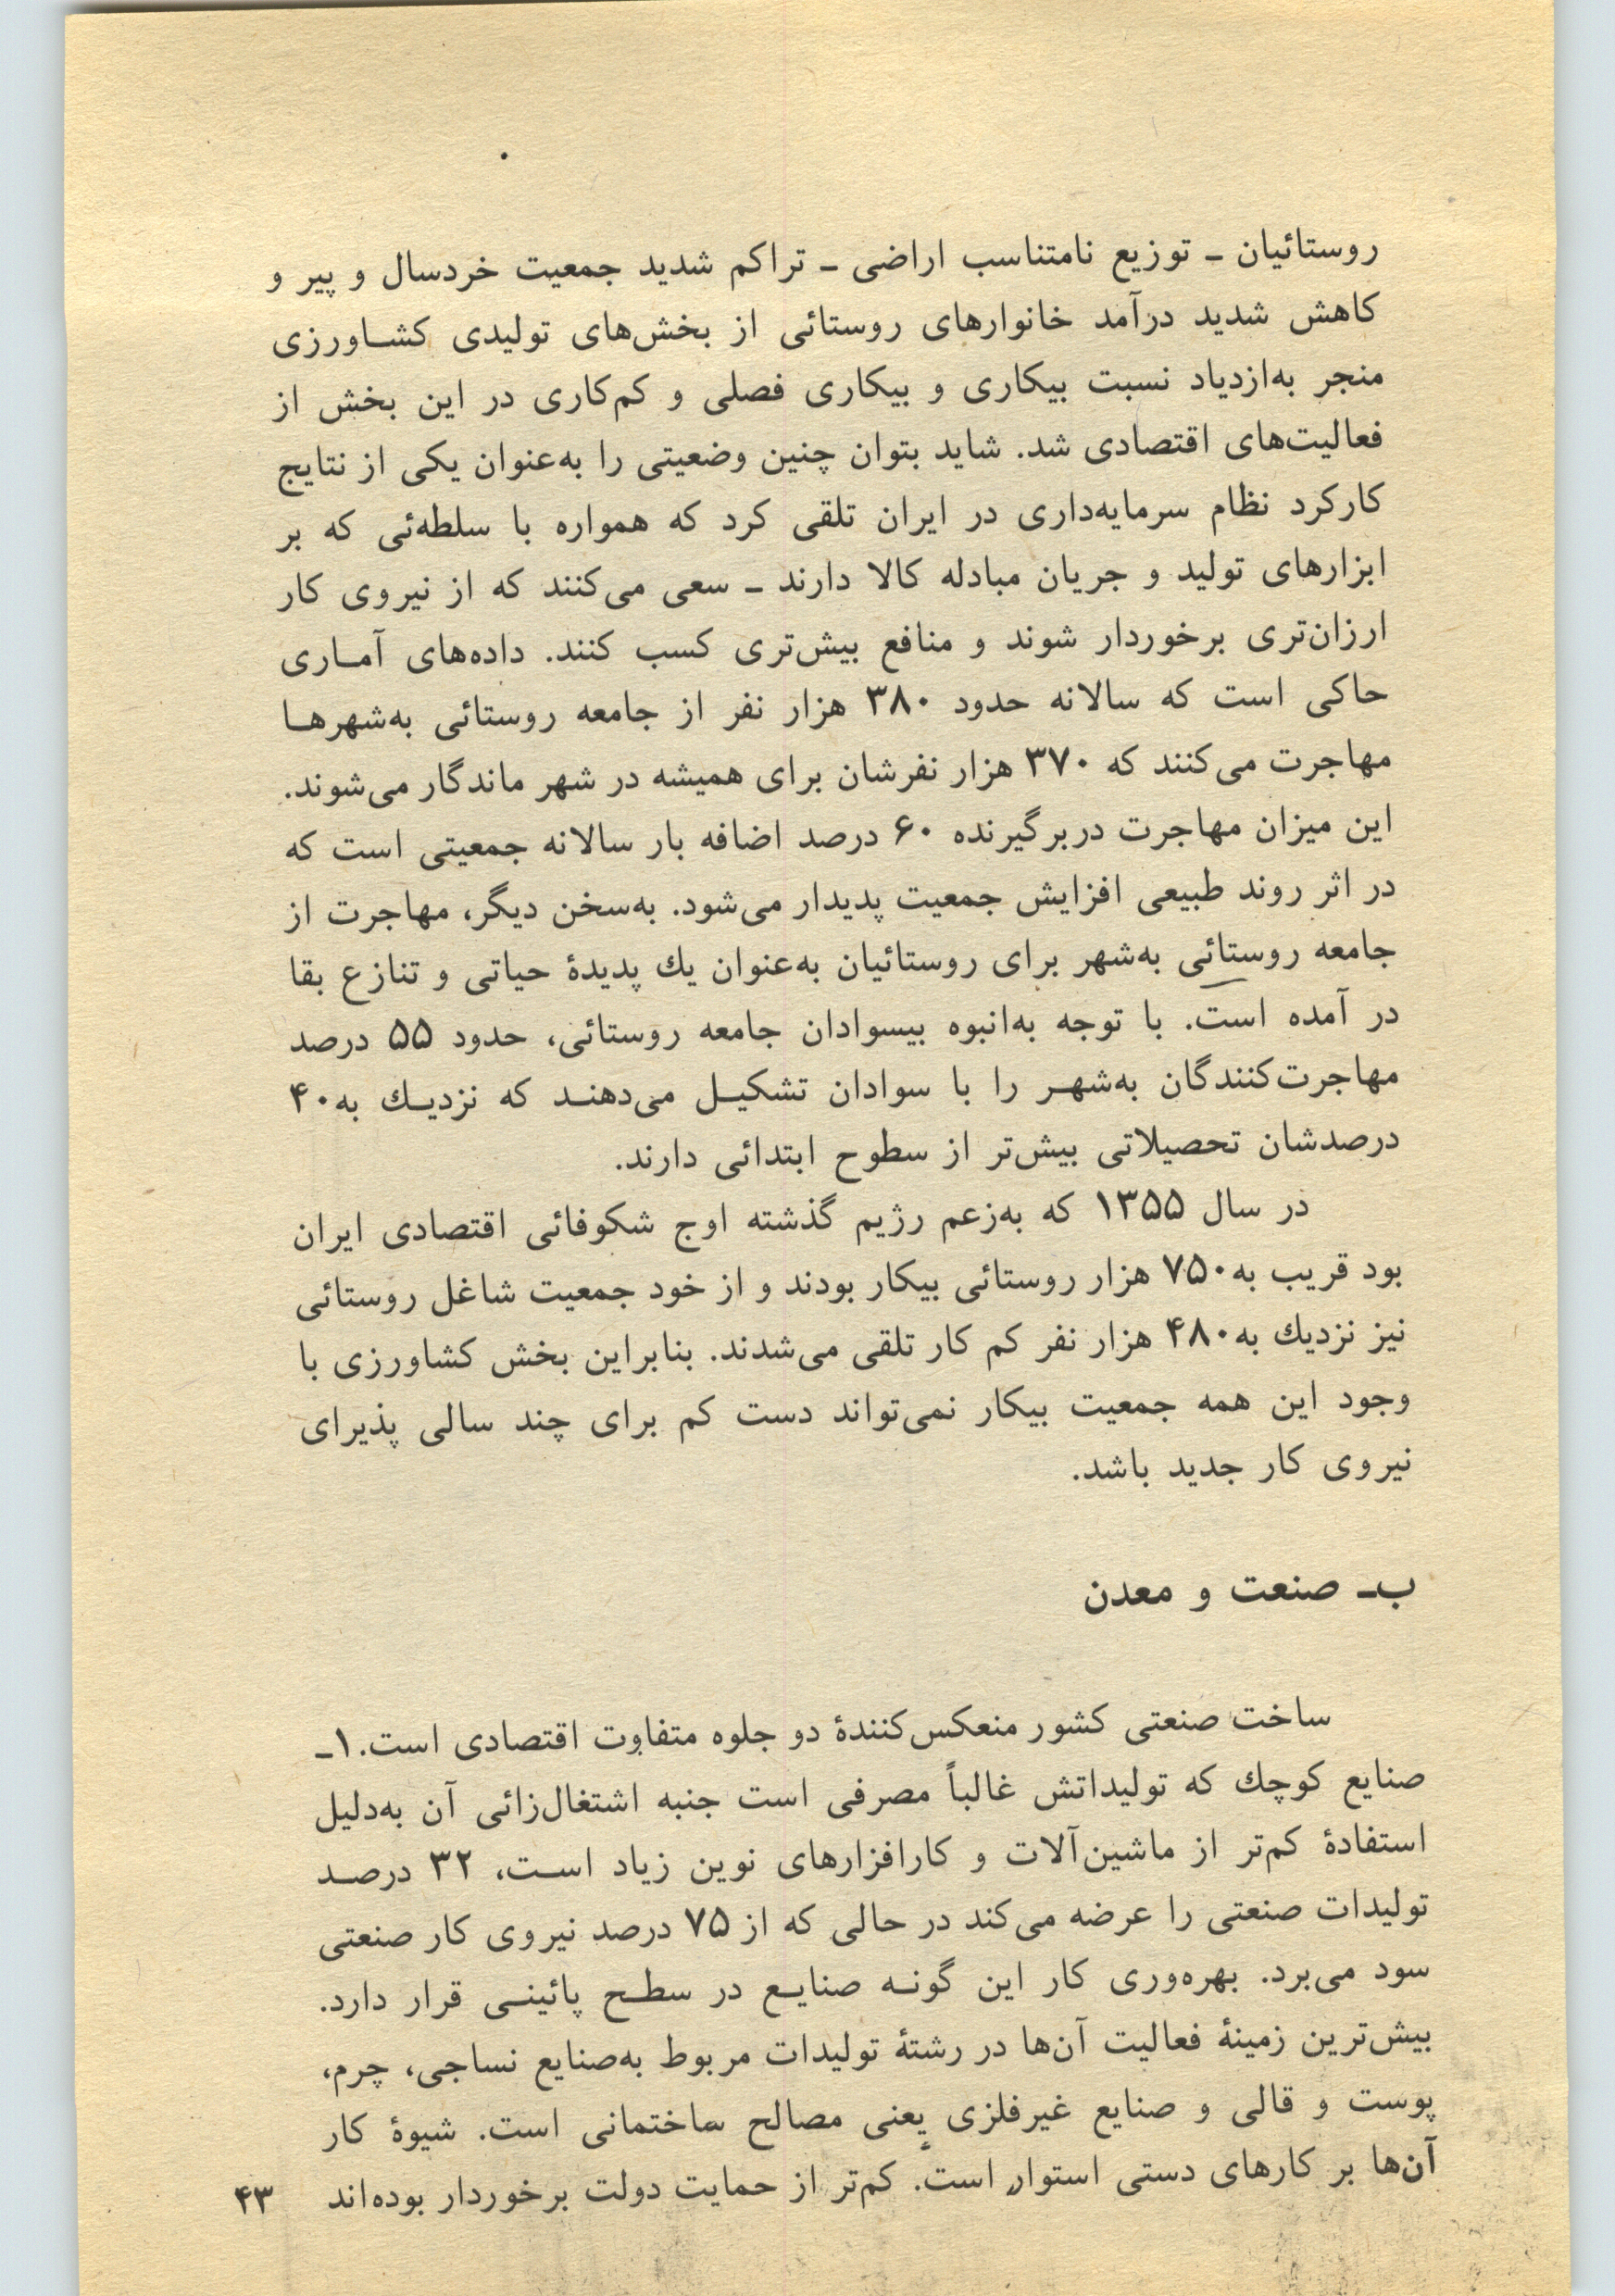 روستائیان ـ توزیع نامتناسب اراضی ـ تراکم شدید جمعیت خردسال و پیر و
کاهش شدید درآمد خانوارهای روستائی از بخش‌های تولیدی کشـاورزی
منجر به‌ازدیاد نسبت بیکاری و بیکاری فصلی و کم‌کاری در این بخش از
فعالیت‌های اقتصادی شد. شاید بتوان چنین وضعیتی را به‌عنوان یکی از نتایج
کارکرد نظام سرمایه‌داری در ایران تلقی کرد که همواره با سلطه‌ئی که بر
ابزارهای تولید و جریان مبادله کالا دارند ـ سعی می‌کنند که از نیروی کار
ارزان‌تری برخوردار شوند و منافع بیش‌تری کسب کنند. داده‌های آمـاری
حاکی است که سالانه حدود ۳۸۰ هزار نفر از جامعه روستائی به‌شهرهـا
مهاجرت می‌کنند که ۳۷۰ هزار نفرشان برای همیشه در شهر ماندگار می‌شوند.
این میزان مهاجرت دربرگیرنده ۶۰ درصد اضافه بار سالانه جمعیتی است که
در اثر روند طبیعی افزایش جمعیت پدیدار می‌شود. به‌سخن دیگر، مهاجرت از
جامعه روستائی به‌شهر برای روستائیان به‌عنوان یك پدیدهٔ حیاتی و تنازع بقا
در آمده است. با توجه به‌انبوه بیسوادان جامعه روستائی، حدود ۵۵ درصد
مهاجرت‌کنندگان به‌شهـر را با سوادان تشکیـل می‌دهنـد که نزدیـك به۴۰
درصدشان تحصیلاتی بیش‌تر از سطوح ابتدائی دارند.
در سال ۱۳۵۵ که به‌زعم رژیم گذشته اوج شکوفائی اقتصادی ایران
بود قریب به۷۵۰ هزار روستائی بیکار بودند و از خود جمعیت شاغل روستائی
نیز نزدیك به۴۸۰ هزار نفر کم کار تلقی می‌شدند. بنابراین بخش کشاورزی با
وجود این همه جمعیت بیکار نمی‌تواند دست کم برای چند سالی پذیرای
نیروی کار جدید باشد.
ب‍ـ صنعت و معدن
ساخت صنعتی کشور منعکس‌کنندهٔ دو جلوه متفاوت اقتصادی است. ۱ـ
صنایع کوچك که تولیداتش غالباً مصرفی است جنبه اشتغال‌زائی آن به‌دلیل
استفادهٔ کم‌تر از ماشین‌آلات و کارافزارهای نوین زیاد اسـت، ۳۲ درصـد
تولیدات صنعتی را عرضه می‌کند در حالی که از ۷۵ درصد نیروی کار صنعتی
سود می‌برد. بهره‌وری کار این گونـه صنایـع در سطـح پائینـی قرار دارد.
بیش‌ترین زمینهٔ فعالیت آن‌ها در رشتهٔ تولیدات مربوط به‌صنایع نساجی، چرم،
پوست و قالی و صنایع غیرفلزی یعنی مصالح ساختمانی است. شیوهٔ کار
آن‌ها بر کارهای دستی استوار است. کم‌تر از حمایت دولت برخوردار بوده‌اند
۴۳